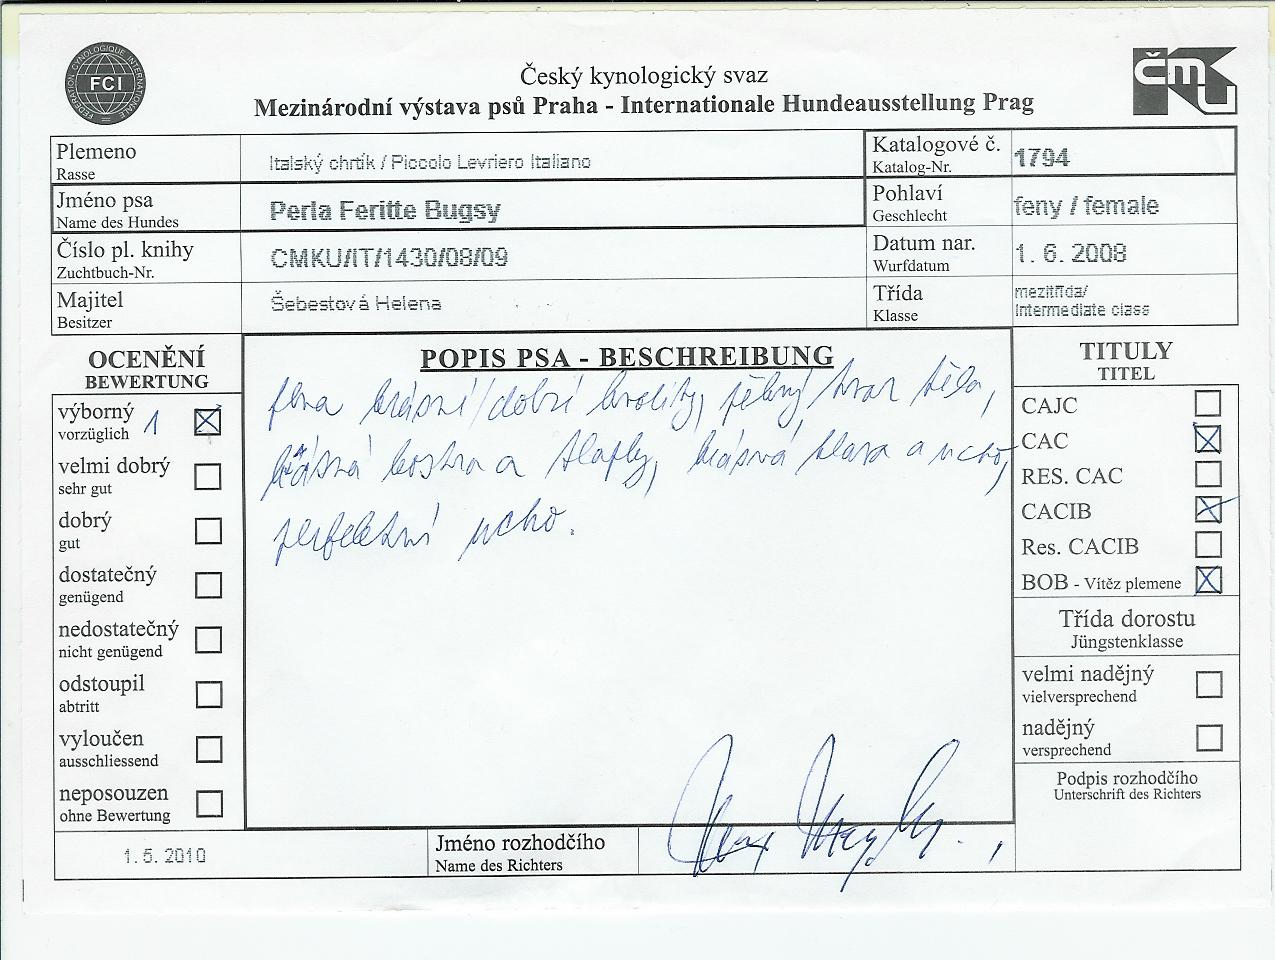 FEDERATION CYNOLOGIQUE INTERNATIONALE
FCI
ČMKU
Český kynologický svaz
Mezinárodní výstava psů Praha - Internationale Hundeausstellung Prag
Plemeno
Rasse
Italský chrtík / Piccolo Levriero Italiano
Katalogové č.
Katalog-Nr.
1794
Jméno psa
Name des Hundes
Perla Feritte Bugsy
Pohlaví
Geschlecht
feny / female
Číslo pl. knihy
Zuchtbuch-Nr.
CMKU/IT/1430/08/09
Datum nar.
Wurfdatum
1. 6. 2008
Majitel
Besitzer
Šebestová Helena
Třída
Klasse
mezitřída/
Intermediate class
OCENĚNÍ
BEWERTUNG
výborný 1
vorzüglich
velmi dobrý
sehr gut
dobrý
gut
dostatečný
genügend
nedostatečný
nicht genügend
odstoupil
abtritt
vyloučen
ausschliessend
neposouzen
ohne Bewertung
POPIS PSA - BESCHREIBUNG
fena krásní/dobré kvality, pěkný tvar těla,
krásná kostra a tlapky, krásná hlava a ucho,
perfektní ucho.
TITULY
TITEL
CAJC
CAC
RES. CAC
CACIB
Res. CACIB
BOB - Vítěz plemene
Třída dorostu
Jüngstenklasse
velmi nadějný
vielversprechend
nadějný
versprechend
Podpis rozhodčího
Unterschrift des Richters
1. 5. 2010
Jméno rozhodčího
Name des Richters